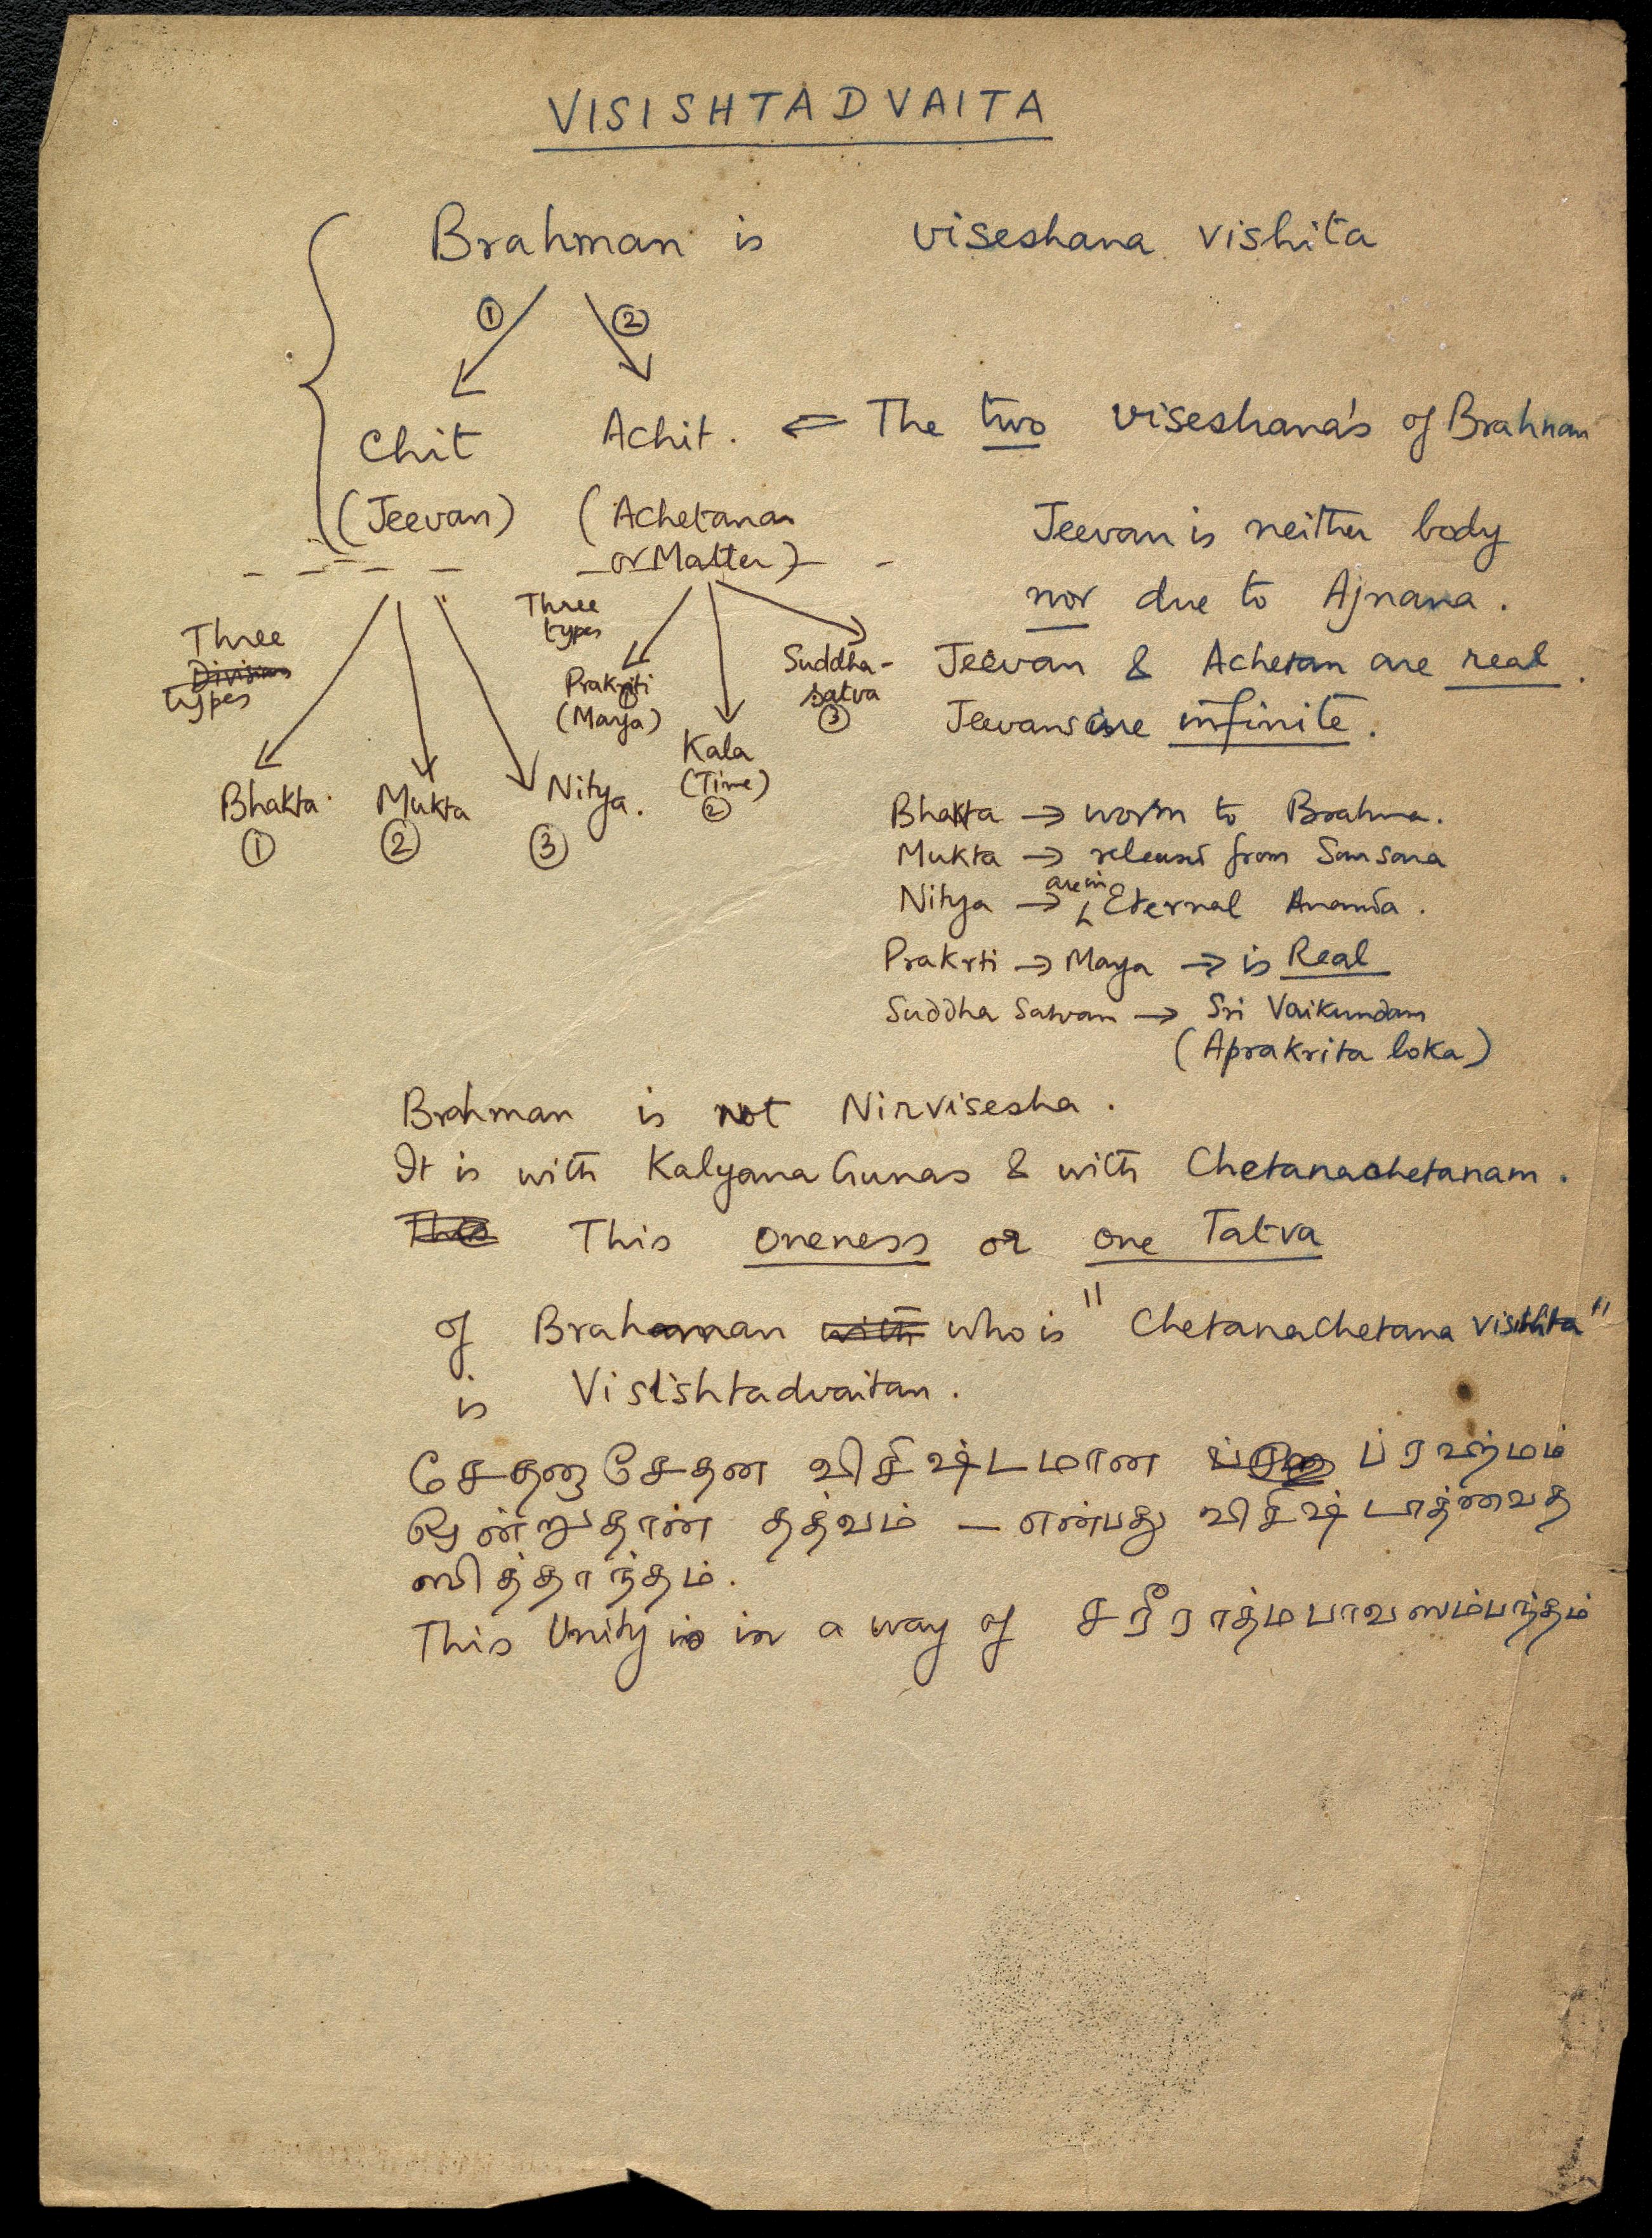 VISISHTADVAITA
Brahman is viseshana vishita
① ②
Chit Achit. ⇐ The two viseshana's of Brahman
(Jeevan) (Achetanam
or Matter)
Jeevan is neither body
nor due to Ajnana.
Jeevan & Achetan are real.
Jeevans are infinite.
Three
Division
types
Three
types
Prakriti
①
(Maya)
Kala
(Time)
②
Suddha-
satva
③
Bhakta Mukta Nitya.
① ② ③
Bhakta → to Brahma.
Mukta → released from Samsara
Nitya → are in Eternal Ananda.
Prakrti → Maya → is Real
Suddha Satvam → Sri Vaikundam
(Aprakrita loka)
Brahman is not Nirvisesha.
It is with Kalyana Gunas & with Chetanachetanam.
This This oneness or one Tatva
of Brahaman with who is "Chetanachetana visishta"
is Visishtadvaitam.
சேதனாசேதன விசிஷ்டமான ப்ரஹ்மம்
ஒன்றுதான் தத்வம் — என்பது விசிஷ்டாத்வைத
ஸித்தாந்தம்.
This Unity is in a way of சரீராத்மபாவஸம்பந்தம்